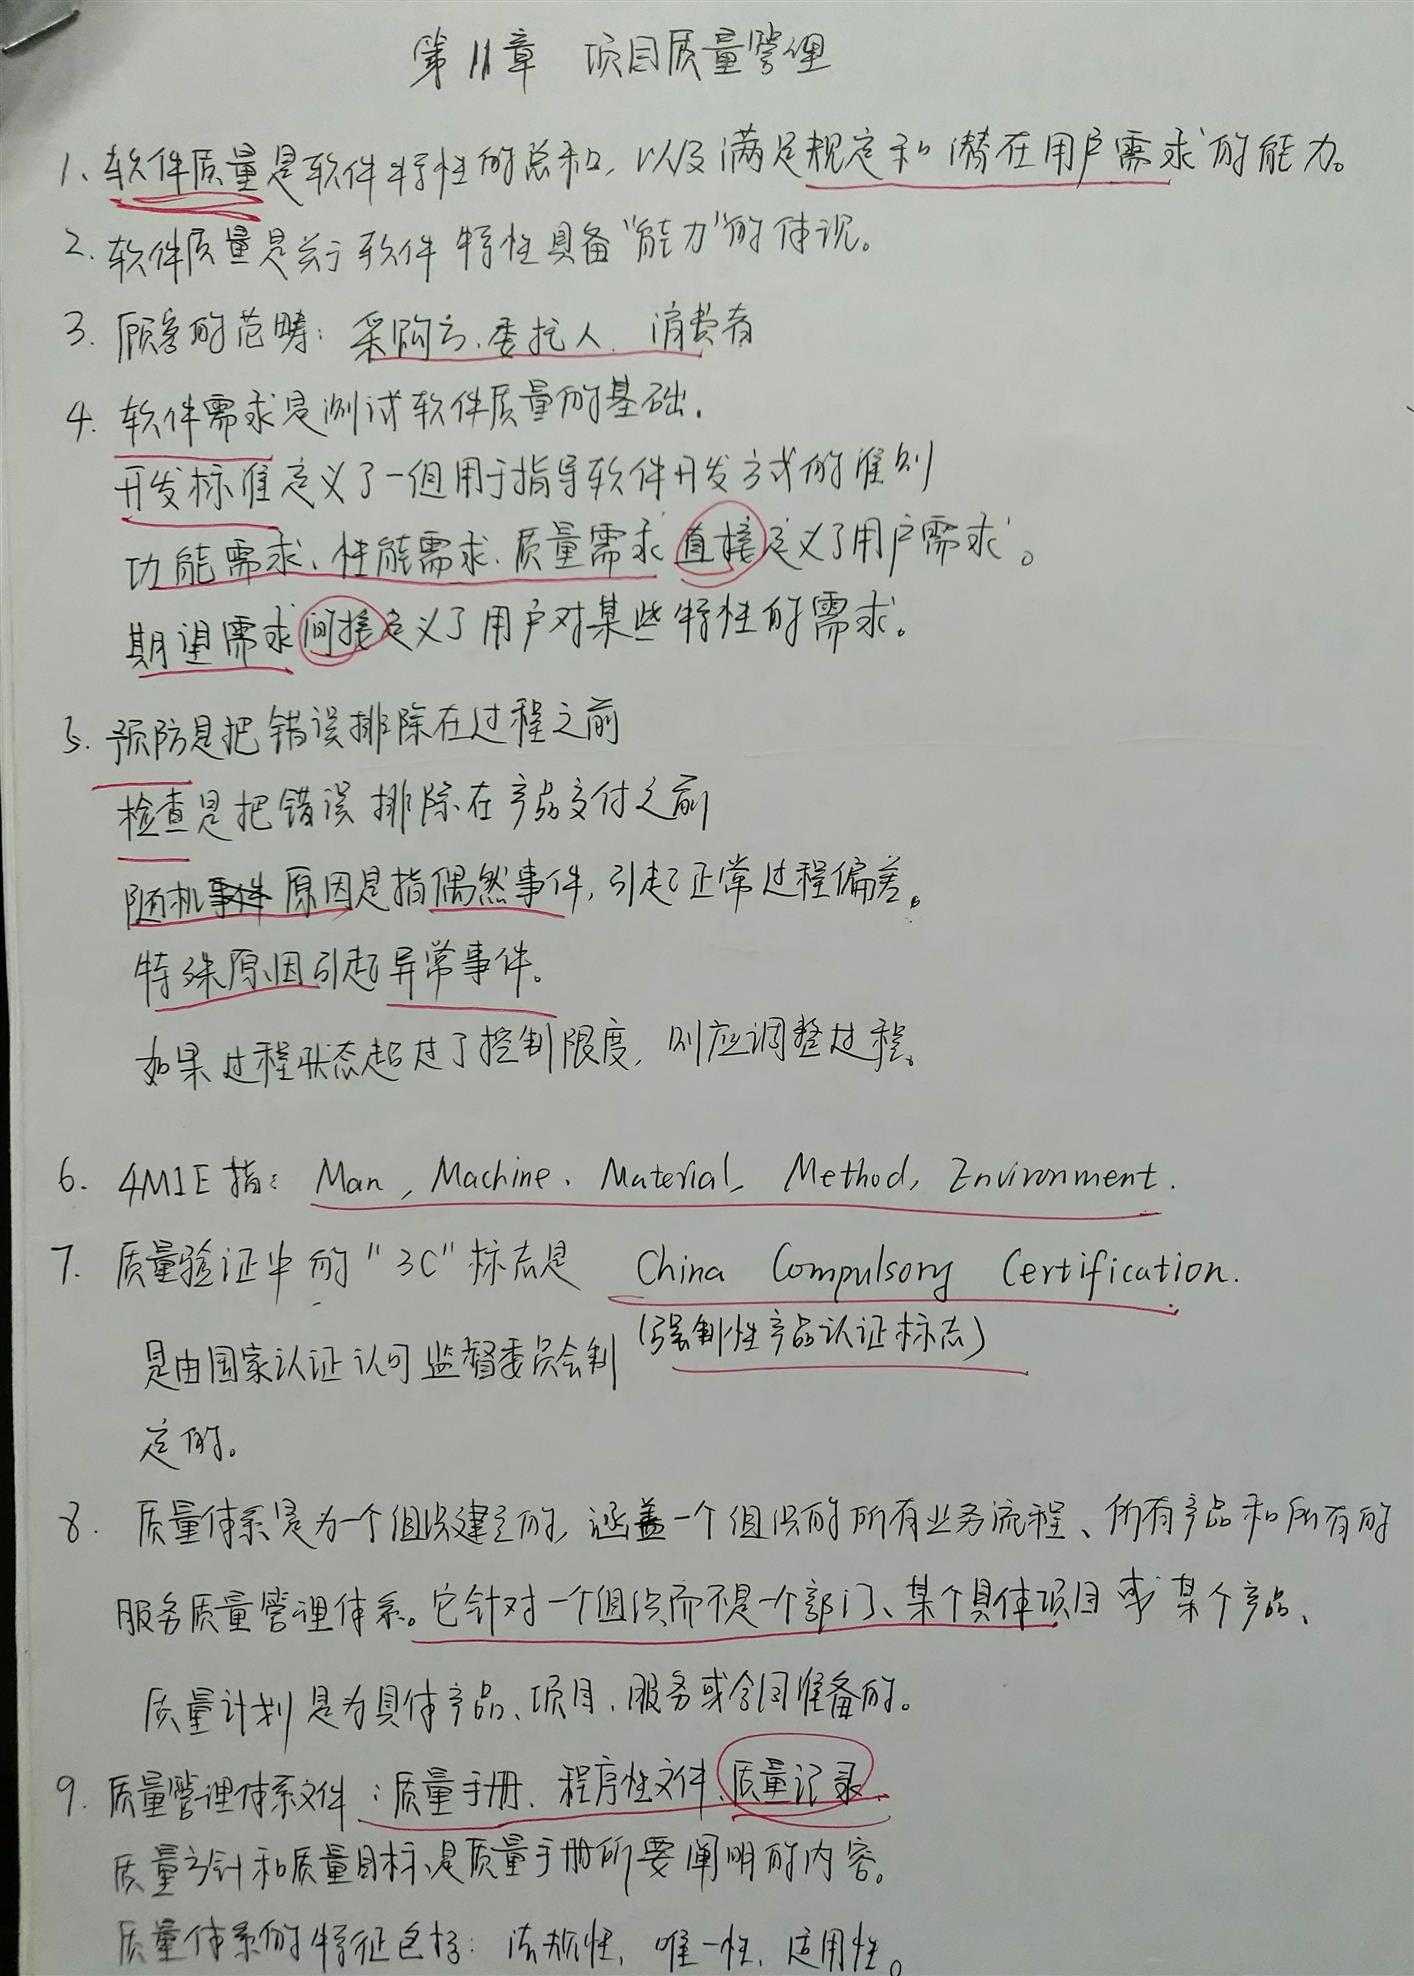 第11章 项目质量管理
1、软件质量是软件特性的总和，以及满足规定和潜在用户需求的能力。
2. 软件质量是关于软件特性具备“能力”的体现。
3. 顾客的范畴：采购方、委托人、消费者
4. 软件需求是测试软件质量的基础.
开发标准定义了一组用于指导软件开发方式的准则
功能需求、性能需求、质量需求直接定义了用户需求。
期望需求间接定义了用户对某些特性的需求。
5. 预防是把错误排除在过程之前
检查是把错误排除在产品交付之前
随机原因是指偶然事件，引起正常过程偏差。
特殊原因引起异常事件。
如果过程状态超过了控制限度，则应调整过程。
6. 4M1E指：Man, Machine、Material, Method, Environment.
7. 质量验证中的"3C"标志是 China Compulsory Certification.
(强制性产品认证标志)
是由国家认证认可监督委员会制
定的。
8. 质量体系是为一个组织建立的，涵盖一个组织的所有业务流程、所有产品和所有的
服务质量管理体系。它针对一个组织而不是一个部门、某个具体项目或某个产品、
质量计划是为具体产品、项目、服务或合同准备的。
9. 质量管理体系文件：质量手册、程序性文件、质量记录.
质量方针和质量目标是质量手册所要阐明的内容。
质量体系的特征包括：法规性，唯一性，适用性。